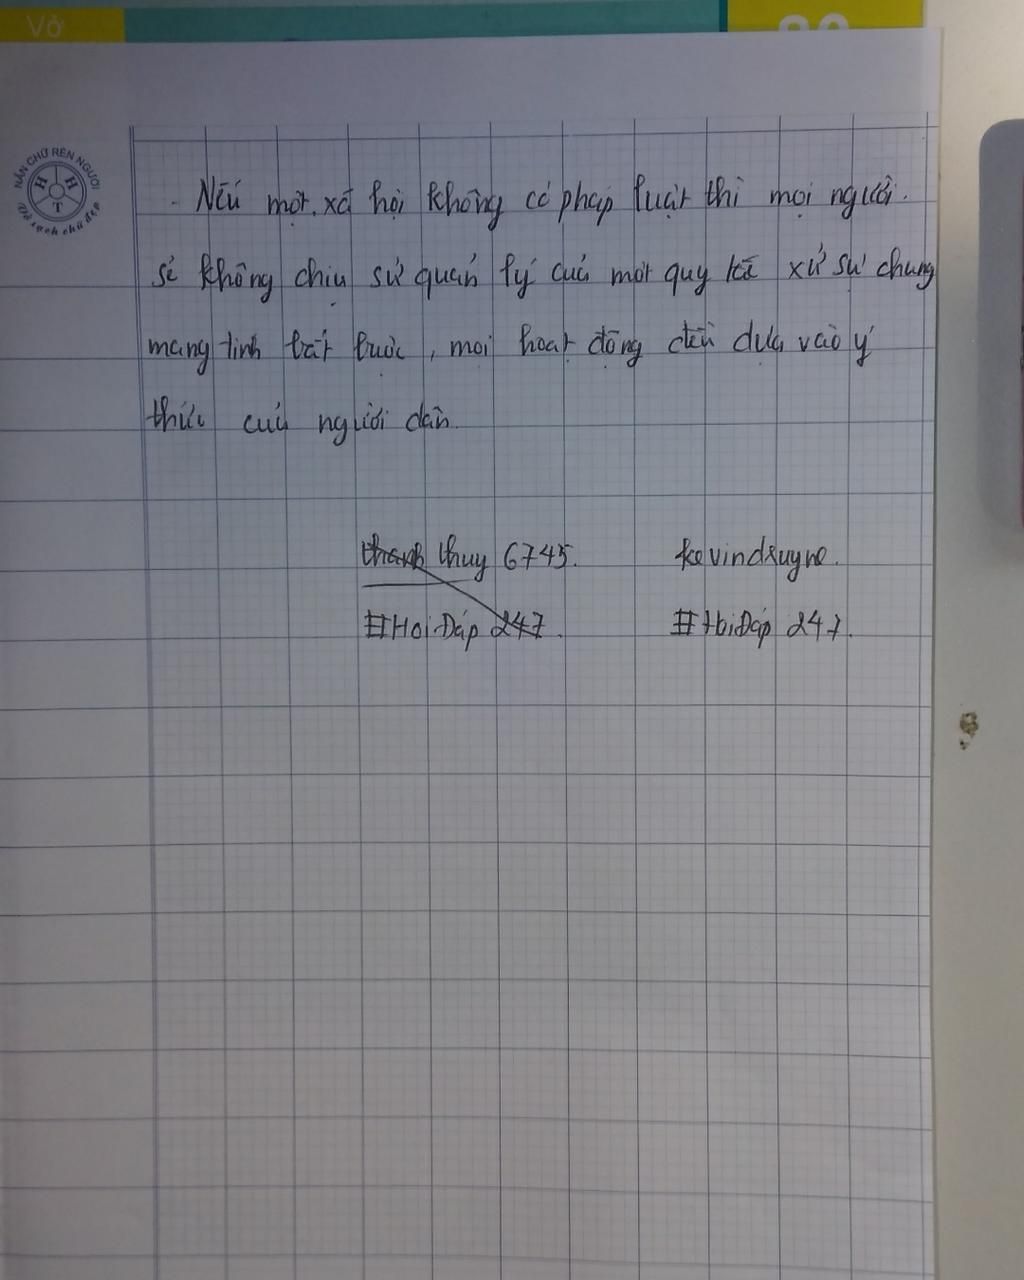 Vở
NẮN CHỮ RÈN NGƯỜI
H H T
Vở sạch chữ đẹp
Nếu một xã hội không có pháp luật thì mọi người
sẽ không chịu sự quản lý của một quy tắc xử sự chung
mang tính bắt buộc, mọi hoạt động đều dựa vào ý
thức của người dân.
thanh thuy 6745. kevindxuyne.
#HoiĐáp 247. #HoiĐáp 247.